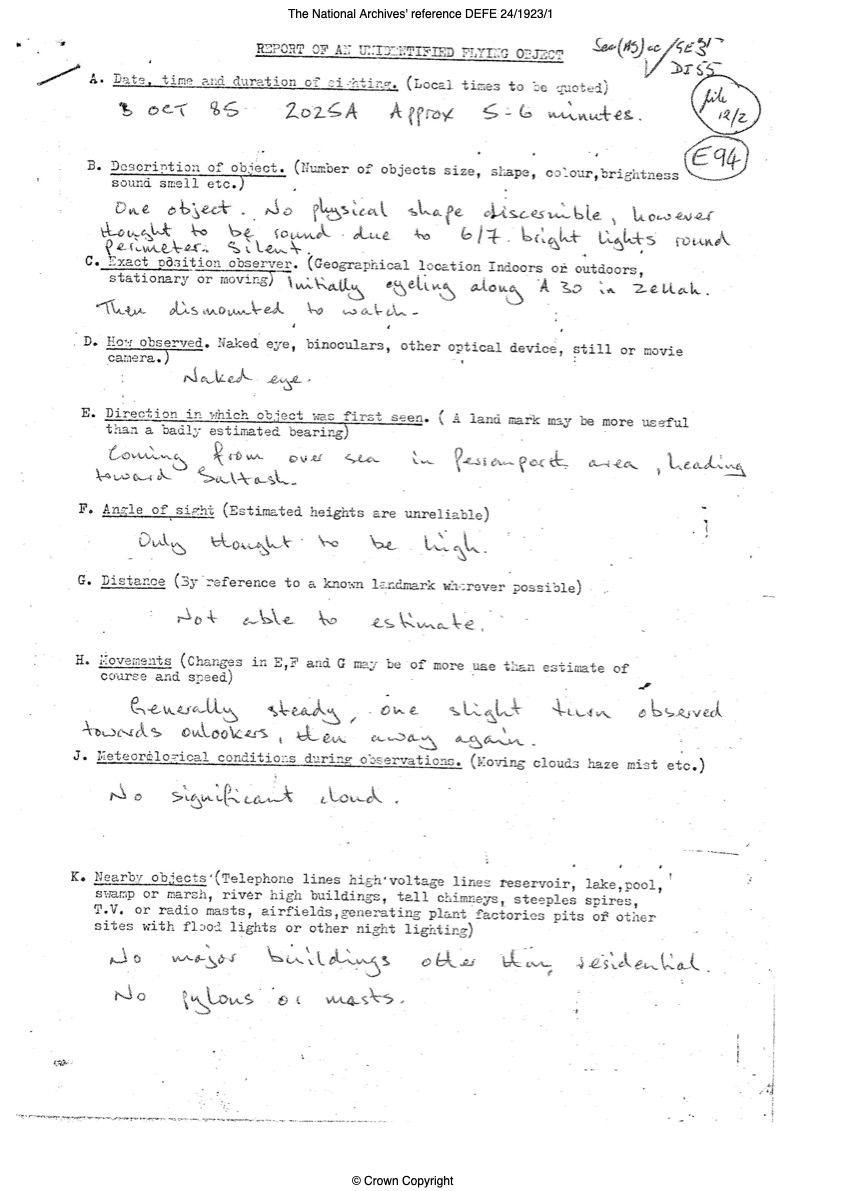 The National Archives' reference DEFE 24/1923/1
REPORT OF AN UNIDENTIFIED FLYING OBJECT
Sec(AS) cc / SE31
DI55
file
12/2
E94
A. Date, time and duration of sighting. (Local times to be quoted)
3 OCT 85 2025A Approx 5-6 minutes.
B. Description of object. (Number of objects size, shape, colour,brightness
sound smell etc.)
One object. No physical shape discernible, however
thought to be round due to 6/7 bright lights round
Perimeter. Silent.
C. Exact position observer. (Geographical location Indoors or outdoors,
stationary or moving) Initially cycling along A 30 in Zellah.
Then dismounted to watch.
D. How observed. Naked eye, binoculars, other optical device, still or movie
camera.)
Naked eye.
E. Direction in which object was first seen. ( A land mark may be more useful
than a badly estimated bearing)
Coming from over sea in area, heading
toward Saltash.
F. Angle of sight (Estimated heights are unreliable)
Only thought to be high.
G. Distance (By reference to a known landmark wherever possible)
Not able to estimate.
H. Movements (Changes in E,F and G may be of more use than estimate of
course and speed)
Generally steady, one slight turn observed
towards onlookers, then away again.
J. Meteorological conditions during observations. (Moving clouds haze mist etc.)
No significant cloud.
K. Nearby objects (Telephone lines high voltage lines reservoir, lake,pool,
swamp or marsh, river high buildings, tall chimneys, steeples spires,
T.V. or radio masts, airfields,generating plant factories pits of other
sites with flood lights or other night lighting)
No major buildings other than residential.
No pylons or masts.
© Crown Copyright